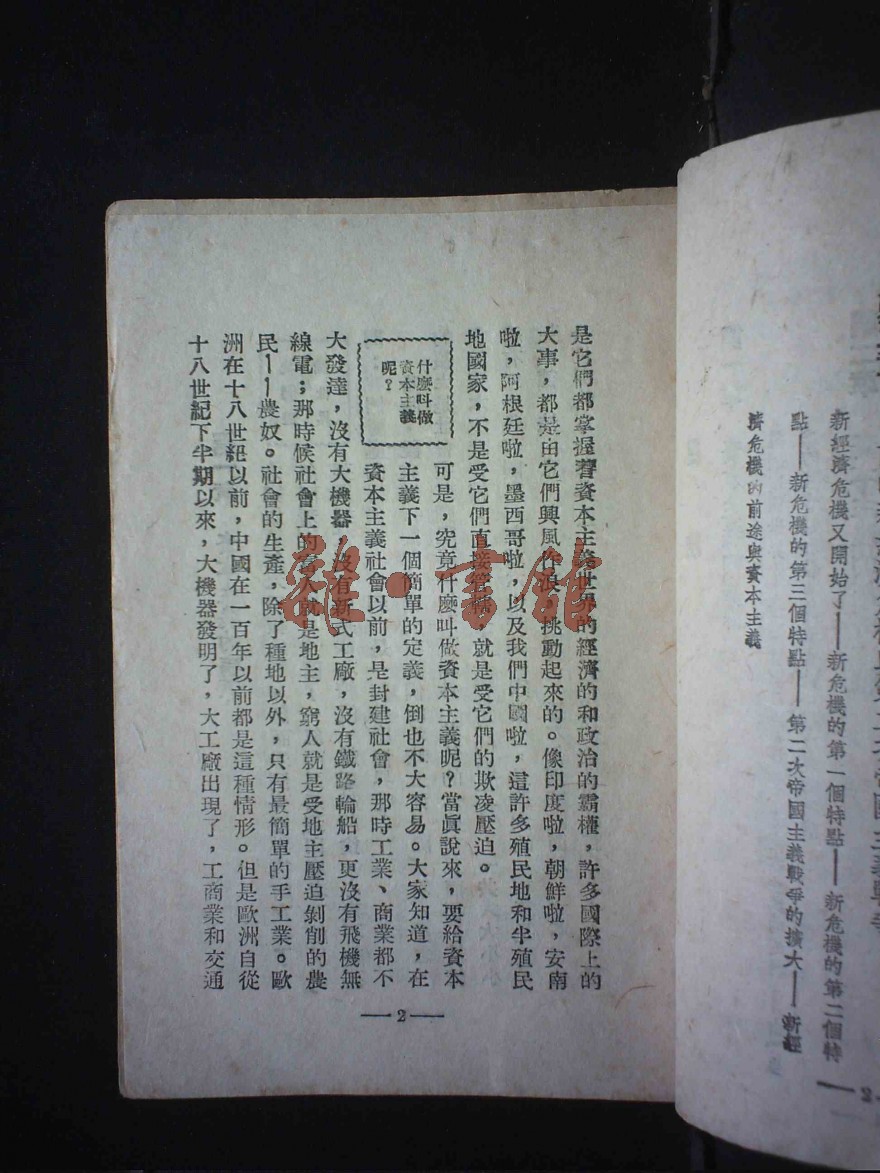 是它們都掌握着資本主義世界的經濟的和政治的霸權，許多國際上的
大事，都是由它們興風作浪，挑動起來的。像印度啦，朝鮮啦，安南
啦，阿根廷啦，墨西哥啦，以及我們中國啦，這許多殖民地和半殖民
地國家，不是受它們直接管轄，就是受它們的欺凌壓迫。
什麼叫做
資本主義
呢？
可是，究竟什麼叫做資本主義呢？當眞說來，要給資本
主義下一個簡單的定義，倒也不大容易。大家知道，在
資本主義社會以前，是封建社會，那時工業、商業都不
大發達，沒有大機器，沒有新式工廠，沒有鐵路輪船，更沒有飛機無
線電；那時候社會上的富人就是地主，窮人就是受地主壓迫剝削的農
民——農奴。社會的生產，除了種地以外，只有最簡單的手工業。歐
洲在十八世紀以前，中國在一百年以前都是這種情形。但是歐洲自從
十八世紀下半期以來，大機器發明了，大工廠出現了，工商業和交通
—2—
新經濟危機又開始了——新危機的第一個特點——新危機的第二個特
點——新危機的第三個特點——第二次帝國主義戰爭的擴大——新經
濟危機的前途與資本主義
—2
雜·書館